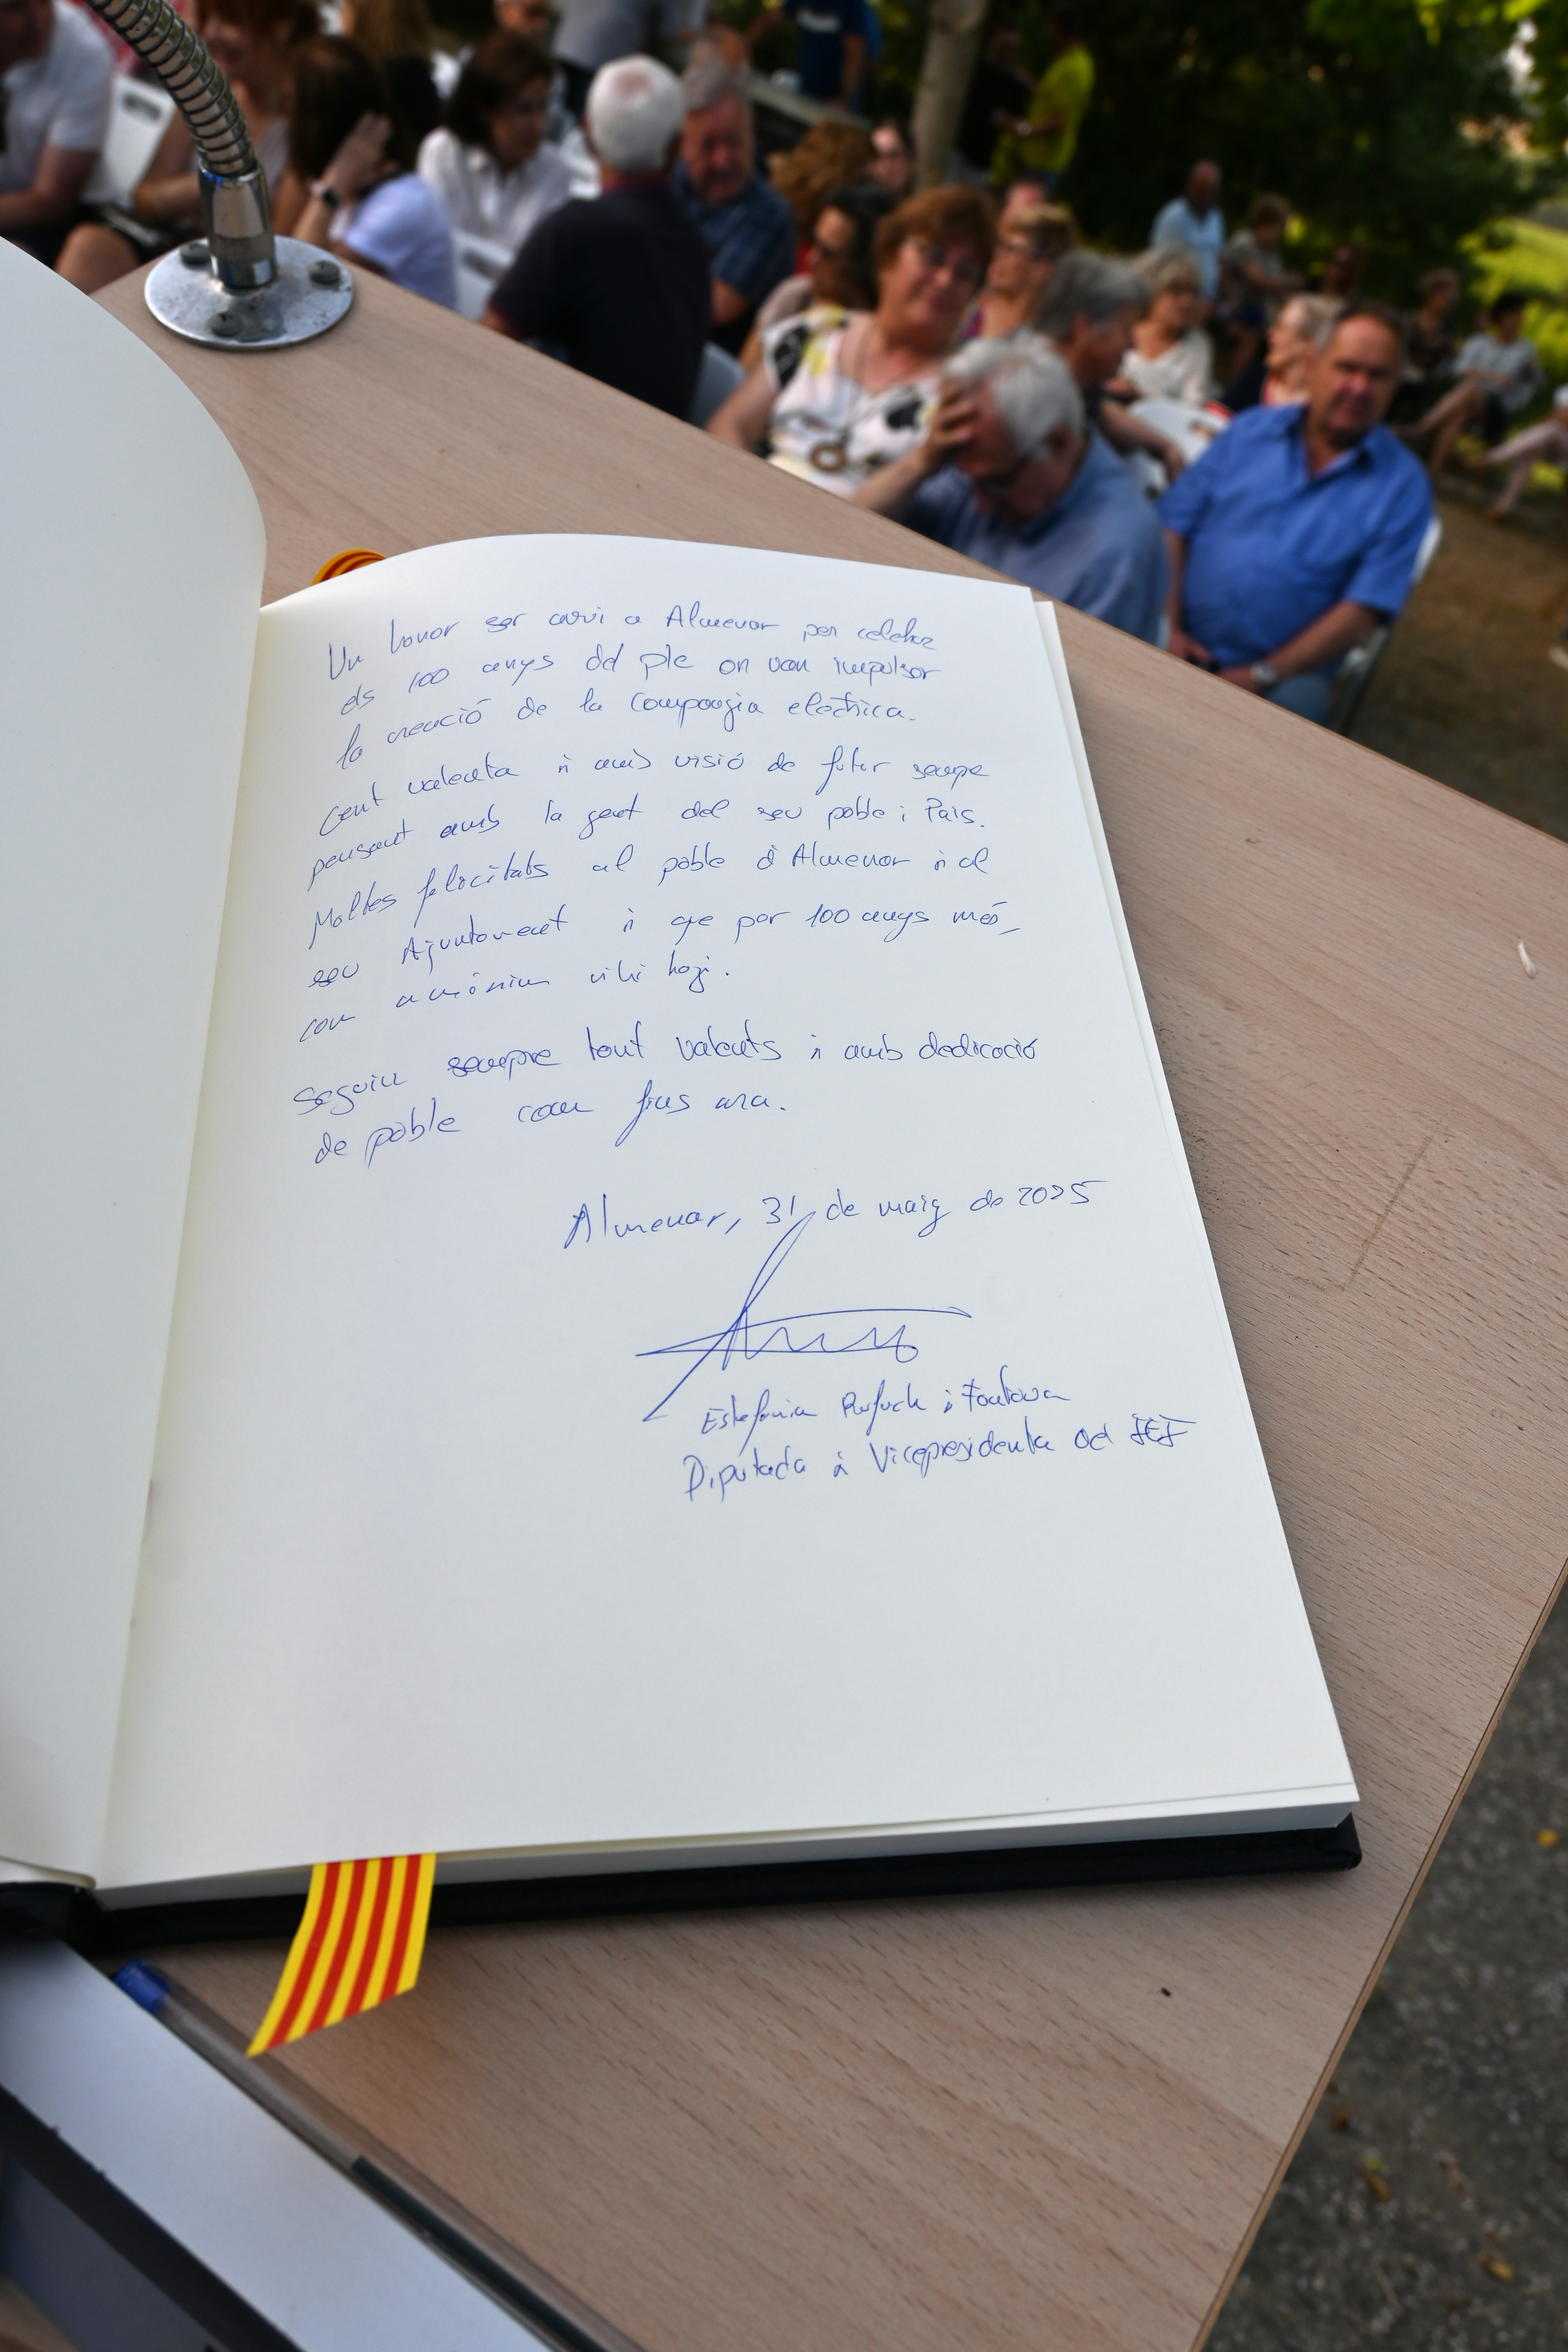 Un honor ser avui a Almenar per celebrar
els 100 anys del ple on van impulsar
la creació de la Companyia elèctrica.
Gent valenta i amb visió de futur sempre
pensant amb la gent del seu poble i País.
Moltes felicitats al poble d'Almenar i al
seu Ajuntament i que per 100 anys més,
com a mínim hi hagi.
Seguiu sempre tant valents i amb dedicació
de poble com fins ara.
Almenar, 31 de maig de 2025
Estefania Rufach i Fontova
Diputada i Vicepresidenta del IEI